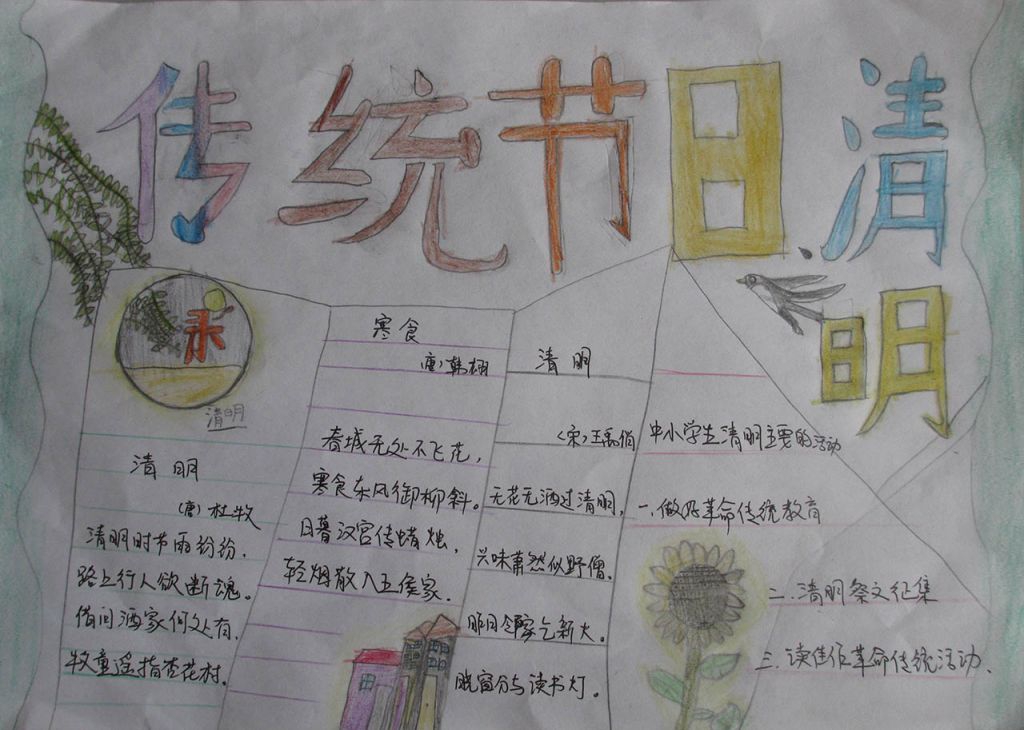 传统节日清
明
清明
清明
(唐)杜牧
清明时节雨纷纷.
路上行人欲断魂。
借问酒家何处有.
牧童遥指杏花村.
寒食
(唐)韩栩
春城无处不飞花,
寒食东风御柳斜。
日暮汉宫传蜡烛,
轻烟散入五侯家.
清明
(宋)王禹偁
无花无酒过清明,
兴味萧然似野僧.
昨日邻家乞新火.
晓窗分与读书灯。
中小学生清明主要的活动
一.做好革命传统教育
二.清明祭文征集
三.读佳作革命传统活动、